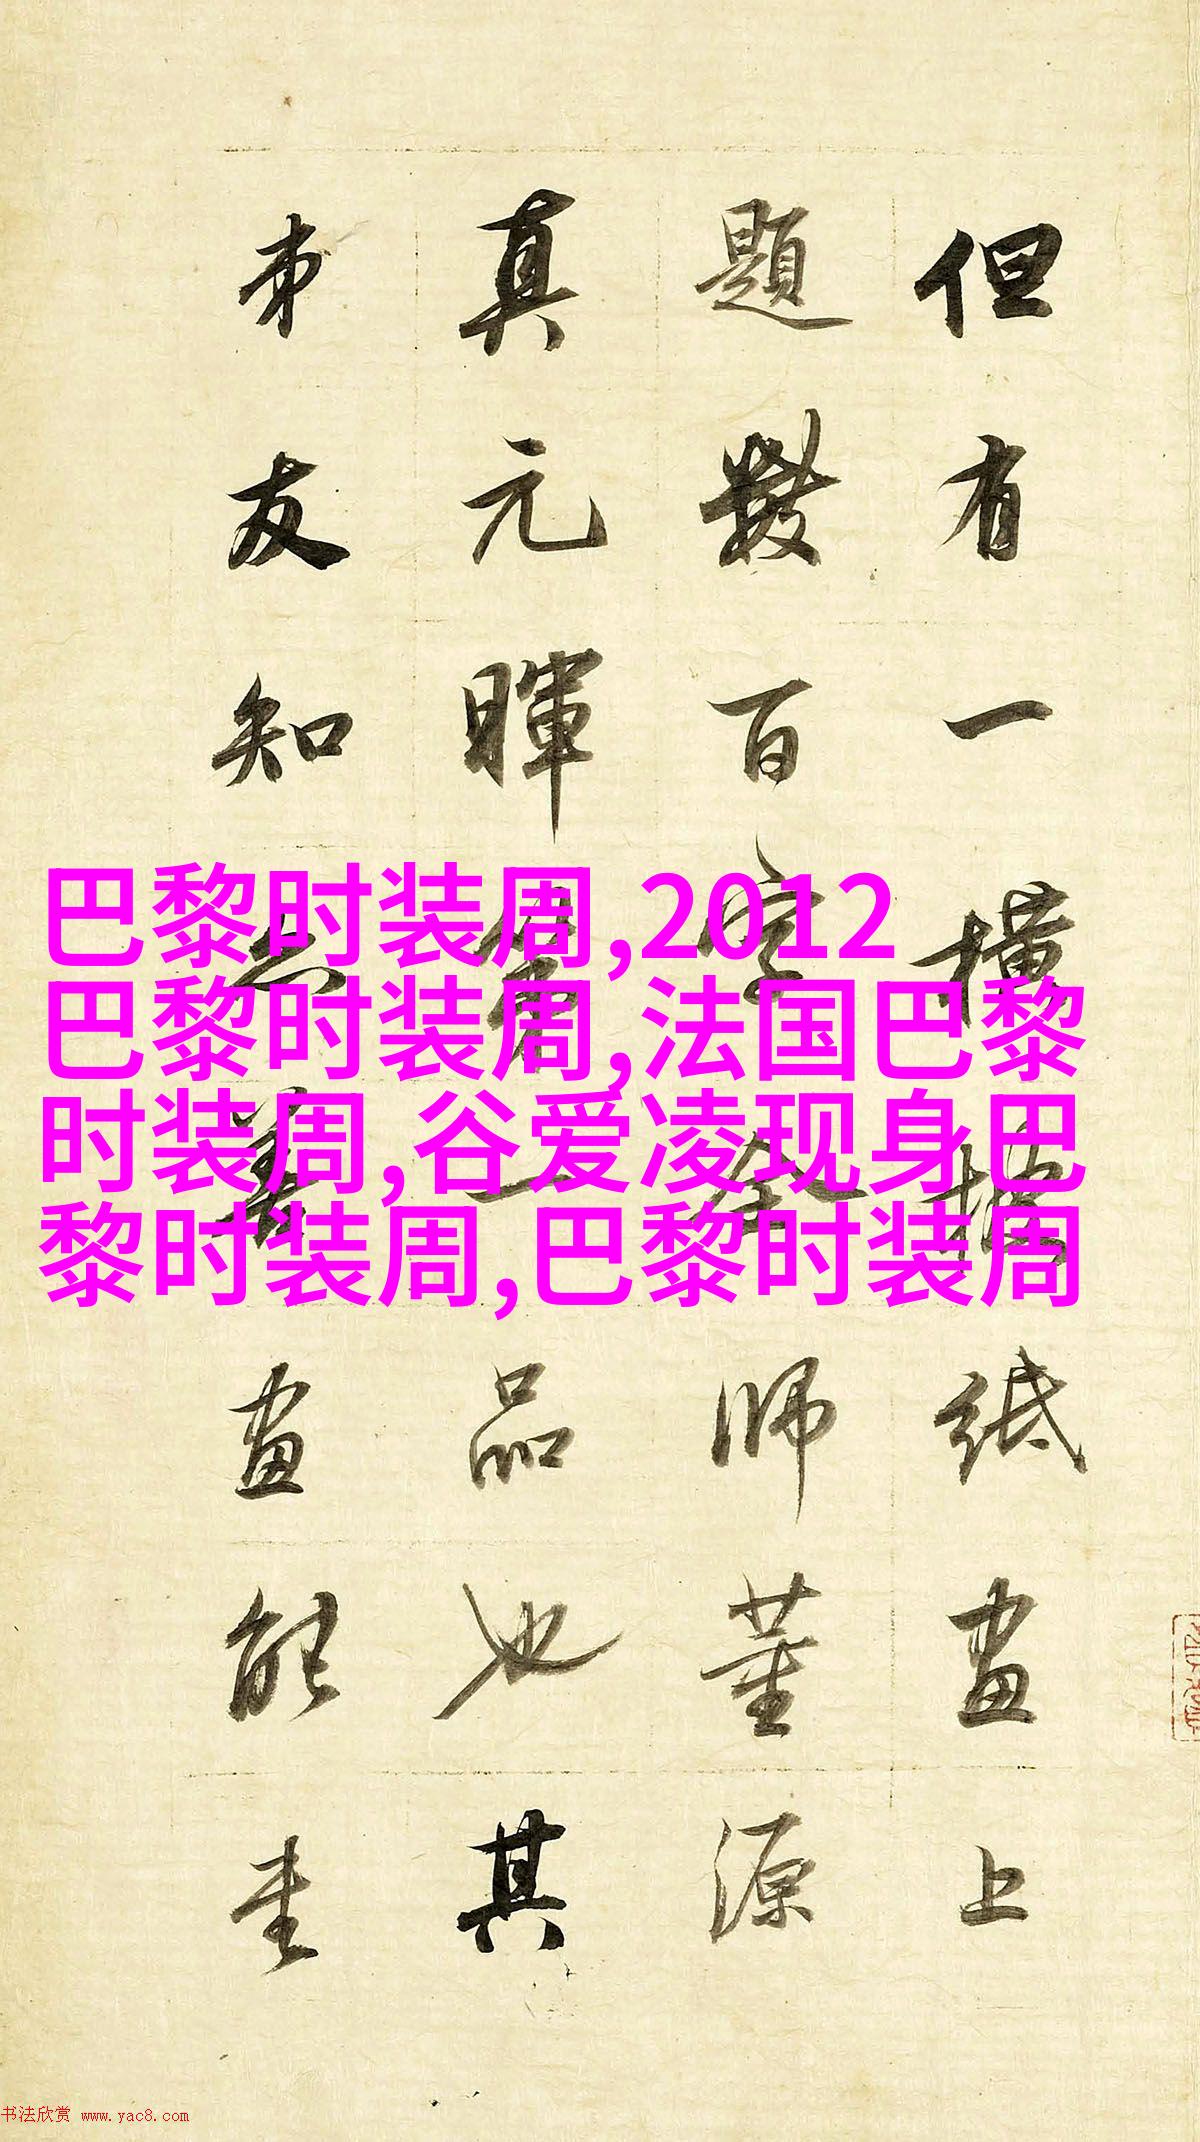 巴黎时装周,2012
巴黎时装周,法国巴黎
时装周,谷爱凌现身巴
黎时装周,巴黎时装周
但有一橫披紙畫上
題數百字全師董源
真元暉一品也其
弟友知亦善畫能書
书法欣赏 www.yac8.com